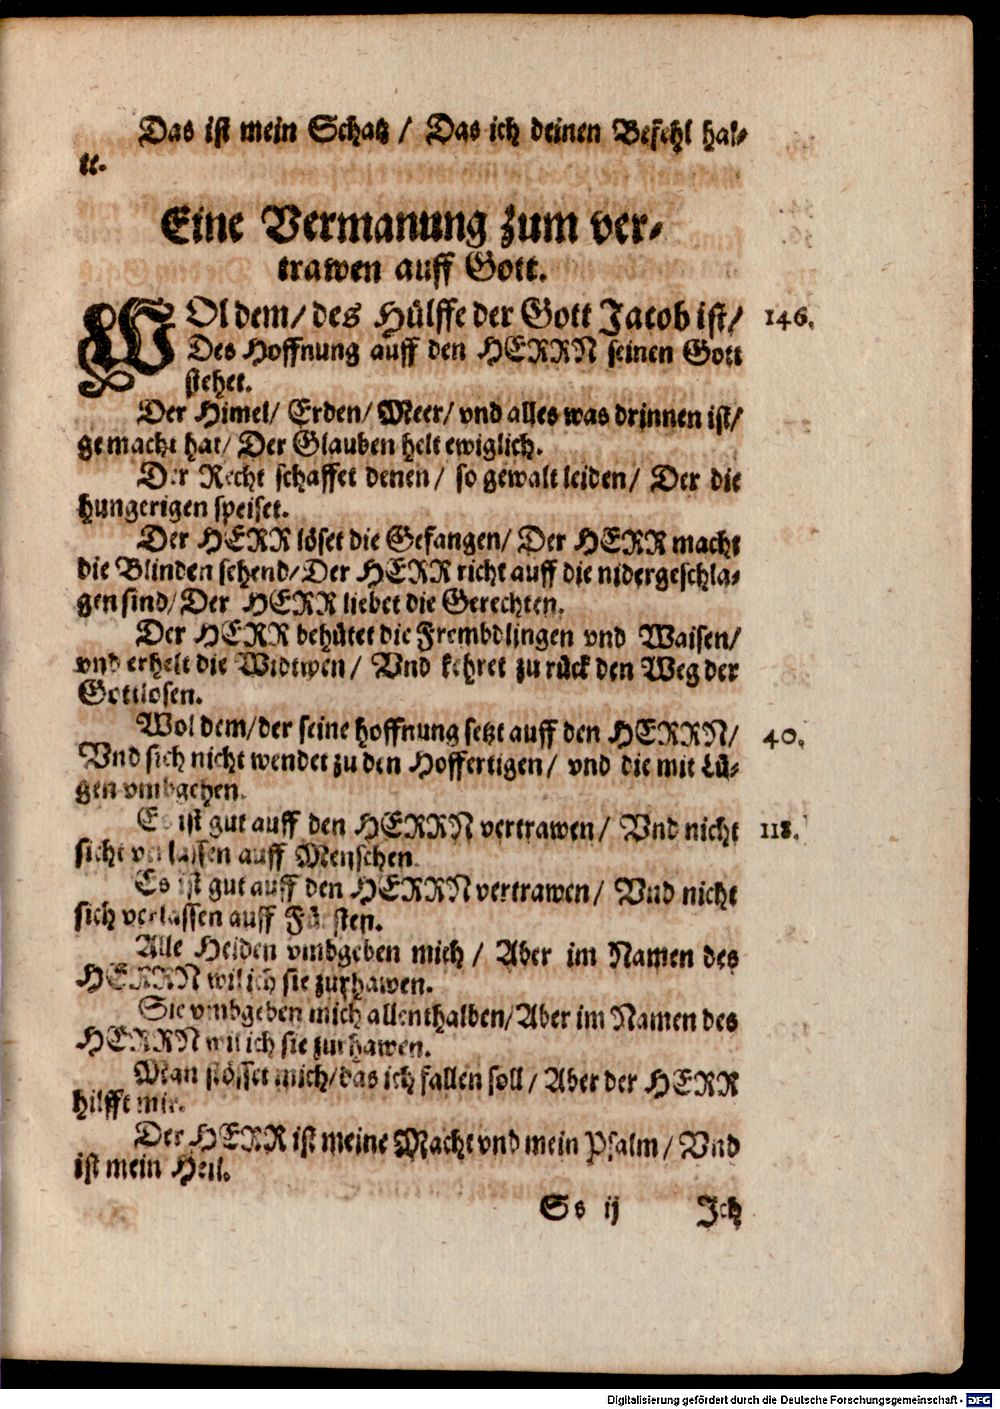 Das ist mein Schatz / Das ich deinen Befehl hal-
te.
Eine Vermanung zum ver-
trawen auff Gott.
WOl dem / des Hülffe der Gott Jacob ist / 146.
Des Hoffnung auff den HERRN seinen Gott
stehet.
Der Himel / Erden / Meer / vnd alles was drinnen ist /
gemacht hat / Der Glauben helt ewiglich.
Der Recht schaffet denen / so gewalt leiden / Der die
hungerigen speiset.
Der HERR löset die Gefangen / Der HERR macht
die Blinden sehend / Der HERR richt auff die nidergeschla-
gen sind / Der HERR liebet die Gerechten.
Der HERR behütet die Frembdlingen vnd Waisen /
vnd erhelt die Widwen / Vnd kehret zu rück den Weg der
Gottlosen.
Wol dem / der seine hoffnung setzt auff den HERRN / 40.
Vnd sich nicht wendet zu den Hoffertigen / vnd die mit Lü-
gen vmbgehen.
Es ist gut auff den HERRN vertrawen / Vnd nicht 118.
sicht verlassen auff Menschen.
Es ist gut auff den HERRN vertrawen / Vnd nicht
sich verlassen auff Fürsten.
Alle Heiden vmbgeben mich / Aber im Namen des
HERRN wil ich sie zurhawen.
Sie vmbgeben mich allenthalben / Aber im Namen des
HERRN wil ich sie zurhawen.
Man stösset mich / das ich fallen soll / Aber der HERR
hilfft mir.
Der HERR ist meine Macht vnd mein Psalm / Vnd
ist mein Heil.
Ss ij Jch
Digitalisierung gefördert durch die Deutsche Forschungsgemeinschaft - DFG